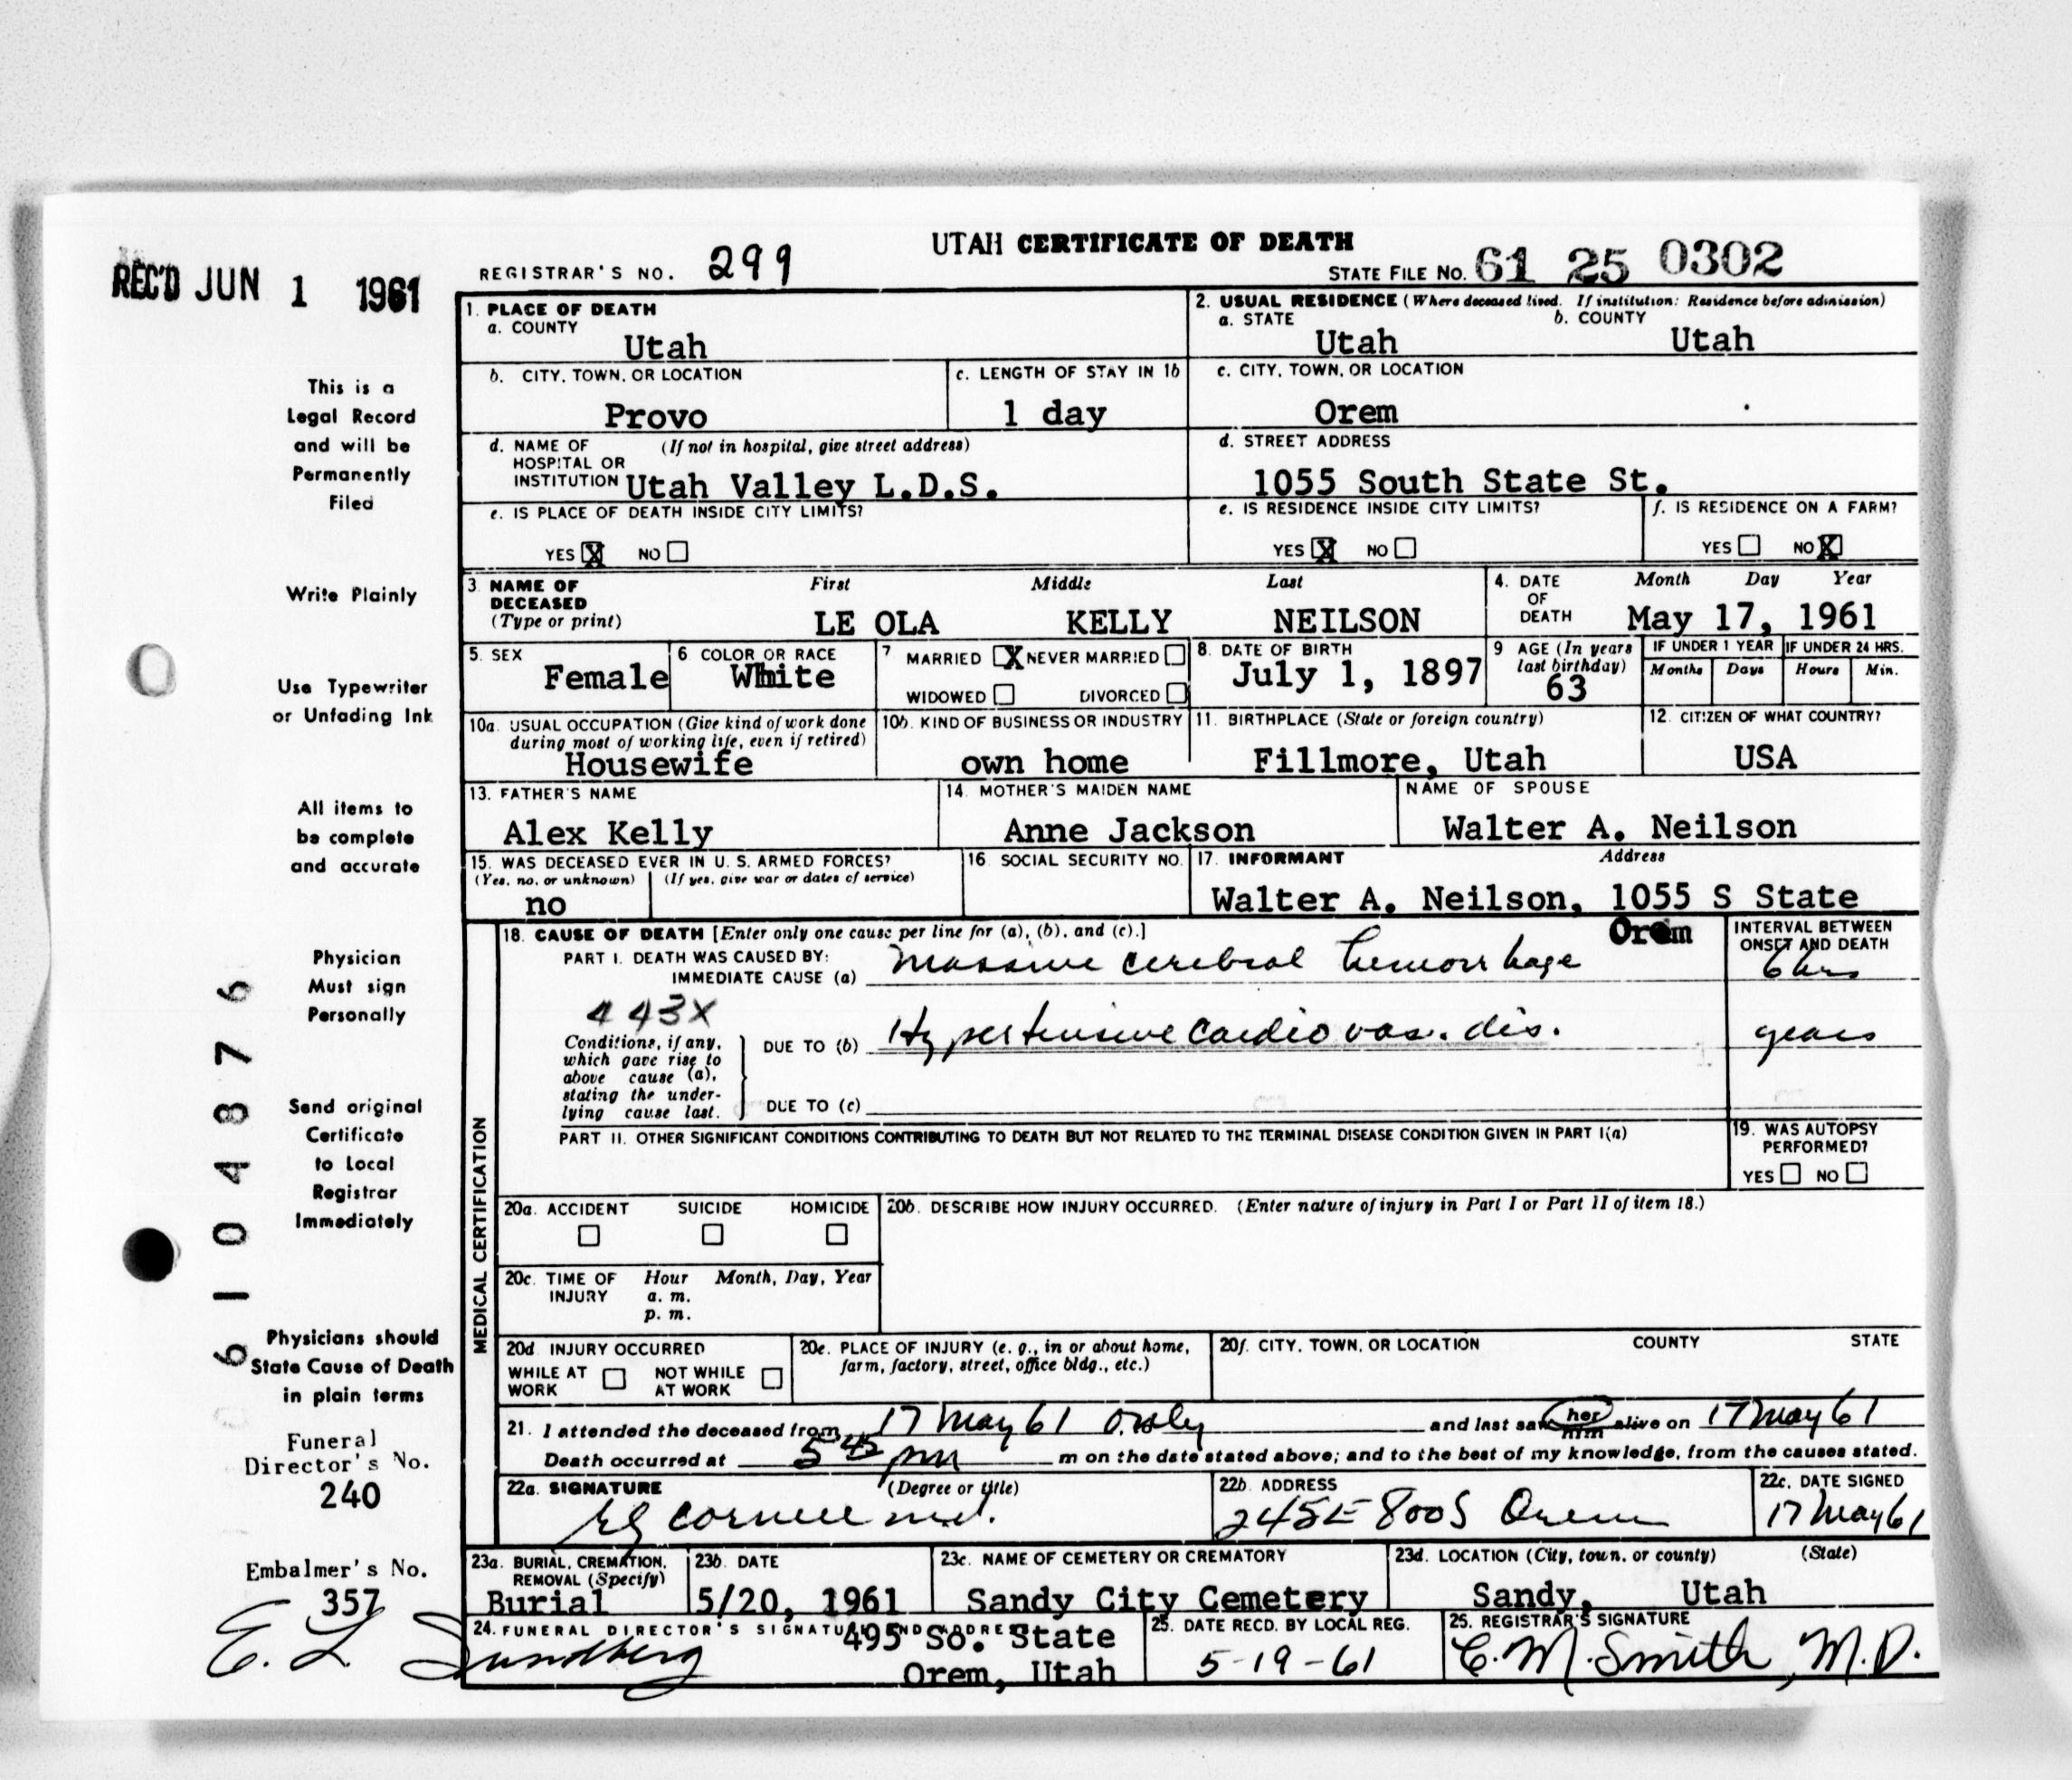 UTAH CERTIFICATE OF DEATH
REC'D JUN 1 1961
REGISTRAR'S NO. 299
STATE FILE NO. 61 25 0302
This is a
Legal Record
and will be
Permanently
Filed
Write Plainly
Use Typewriter
or Unfading Ink
All items to
be complete
and accurate
Physician
Must sign
Personally
Send original
Certificate
to Local
Registrar
Immediately
Physicians should
State Cause of Death
in plain terms
Funeral
Director's No.
240
Embalmer's No.
357
6104876
1. PLACE OF DEATH
a. COUNTY
Utah
2. USUAL RESIDENCE (Where deceased lived. If institution: Residence before admission)
a. STATE b. COUNTY
Utah Utah
b. CITY, TOWN, OR LOCATION
Provo
c. LENGTH OF STAY IN 1b
1 day
c. CITY, TOWN, OR LOCATION
Orem
d. NAME OF (If not in hospital, give street address)
HOSPITAL OR
INSTITUTION Utah Valley L.D.S.
d. STREET ADDRESS
1055 South State St.
e. IS PLACE OF DEATH INSIDE CITY LIMITS?
YES X NO
e. IS RESIDENCE INSIDE CITY LIMITS?
YES X NO
f. IS RESIDENCE ON A FARM?
YES NO X
3 NAME OF First Middle Last
DECEASED
(Type or print) LE OLA KELLY NEILSON
4. DATE Month Day Year
OF
DEATH May 17, 1961
5. SEX
Female
6 COLOR OR RACE
White
7 MARRIED X NEVER MARRIED
WIDOWED DIVORCED
8. DATE OF BIRTH
July 1, 1897
9 AGE (In years
last birthday)
63
IF UNDER 1 YEAR IF UNDER 24 HRS.
Months Days Hours Min.
10a. USUAL OCCUPATION (Give kind of work done
during most of working life, even if retired)
Housewife
10b. KIND OF BUSINESS OR INDUSTRY
own home
11. BIRTHPLACE (State or foreign country)
Fillmore, Utah
12. CITIZEN OF WHAT COUNTRY?
USA
13. FATHER'S NAME
Alex Kelly
14. MOTHER'S MAIDEN NAME
Anne Jackson
NAME OF SPOUSE
Walter A. Neilson
15. WAS DECEASED EVER IN U. S. ARMED FORCES?
(Yes, no, or unknown) (If yes, give war or dates of service)
no
16. SOCIAL SECURITY NO.
17. INFORMANT Address
Walter A. Neilson, 1055 S State
Orem
MEDICAL CERTIFICATION
18. CAUSE OF DEATH [Enter only one cause per line for (a), (b), and (c).]
PART I. DEATH WAS CAUSED BY:
IMMEDIATE CAUSE (a) Massive cerebral hemorrhage
INTERVAL BETWEEN
ONSET AND DEATH
6 hrs
443X
Conditions, if any,
which gave rise to
above cause (a),
stating the under-
lying cause last.
DUE TO (b) Hypertensive cardio vas. dis.
years
DUE TO (c)
PART II. OTHER SIGNIFICANT CONDITIONS CONTRIBUTING TO DEATH BUT NOT RELATED TO THE TERMINAL DISEASE CONDITION GIVEN IN PART I(a)
19. WAS AUTOPSY
PERFORMED?
YES NO
20a. ACCIDENT SUICIDE HOMICIDE
20b. DESCRIBE HOW INJURY OCCURRED. (Enter nature of injury in Part I or Part II of item 18.)
20c. TIME OF Hour Month, Day, Year
INJURY a. m.
p. m.
20d. INJURY OCCURRED
WHILE AT NOT WHILE
WORK AT WORK
20e. PLACE OF INJURY (e. g., in or about home,
farm, factory, street, office bldg., etc.)
20f. CITY, TOWN, OR LOCATION COUNTY STATE
21. I attended the deceased from 17 May 61 only and last saw her him alive on 17 May 61
Death occurred at 5 45 pm m on the date stated above; and to the best of my knowledge, from the causes stated.
22a. SIGNATURE (Degree or title)
Cornell M.D.
22b. ADDRESS
245 E 800 S Orem
22c. DATE SIGNED
17 May 61
23a. BURIAL, CREMATION,
REMOVAL (Specify)
Burial
23b. DATE
5/20, 1961
23c. NAME OF CEMETERY OR CREMATORY
Sandy City Cemetery
23d. LOCATION (City, town, or county) (State)
Sandy, Utah
24. FUNERAL DIRECTOR'S SIGNATURE AND ADDRESS
E. L. Sundberg
495 So. State
Orem, Utah
25. DATE RECD. BY LOCAL REG.
5-19-61
25. REGISTRAR'S SIGNATURE
C. M. Smith, M.D.